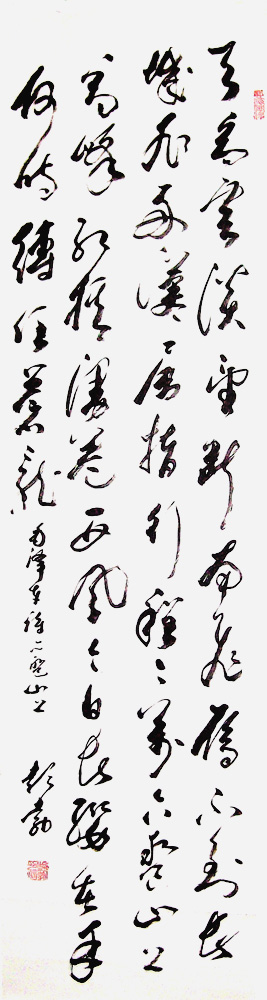 天高雲淡望斷南飛雁不到長
城非好漢屈指行程二萬六盤山上
高峰紅旗漫卷西風今日長纓在手
何時縛住蒼龍
毛澤東詩六盤山上
彭勃